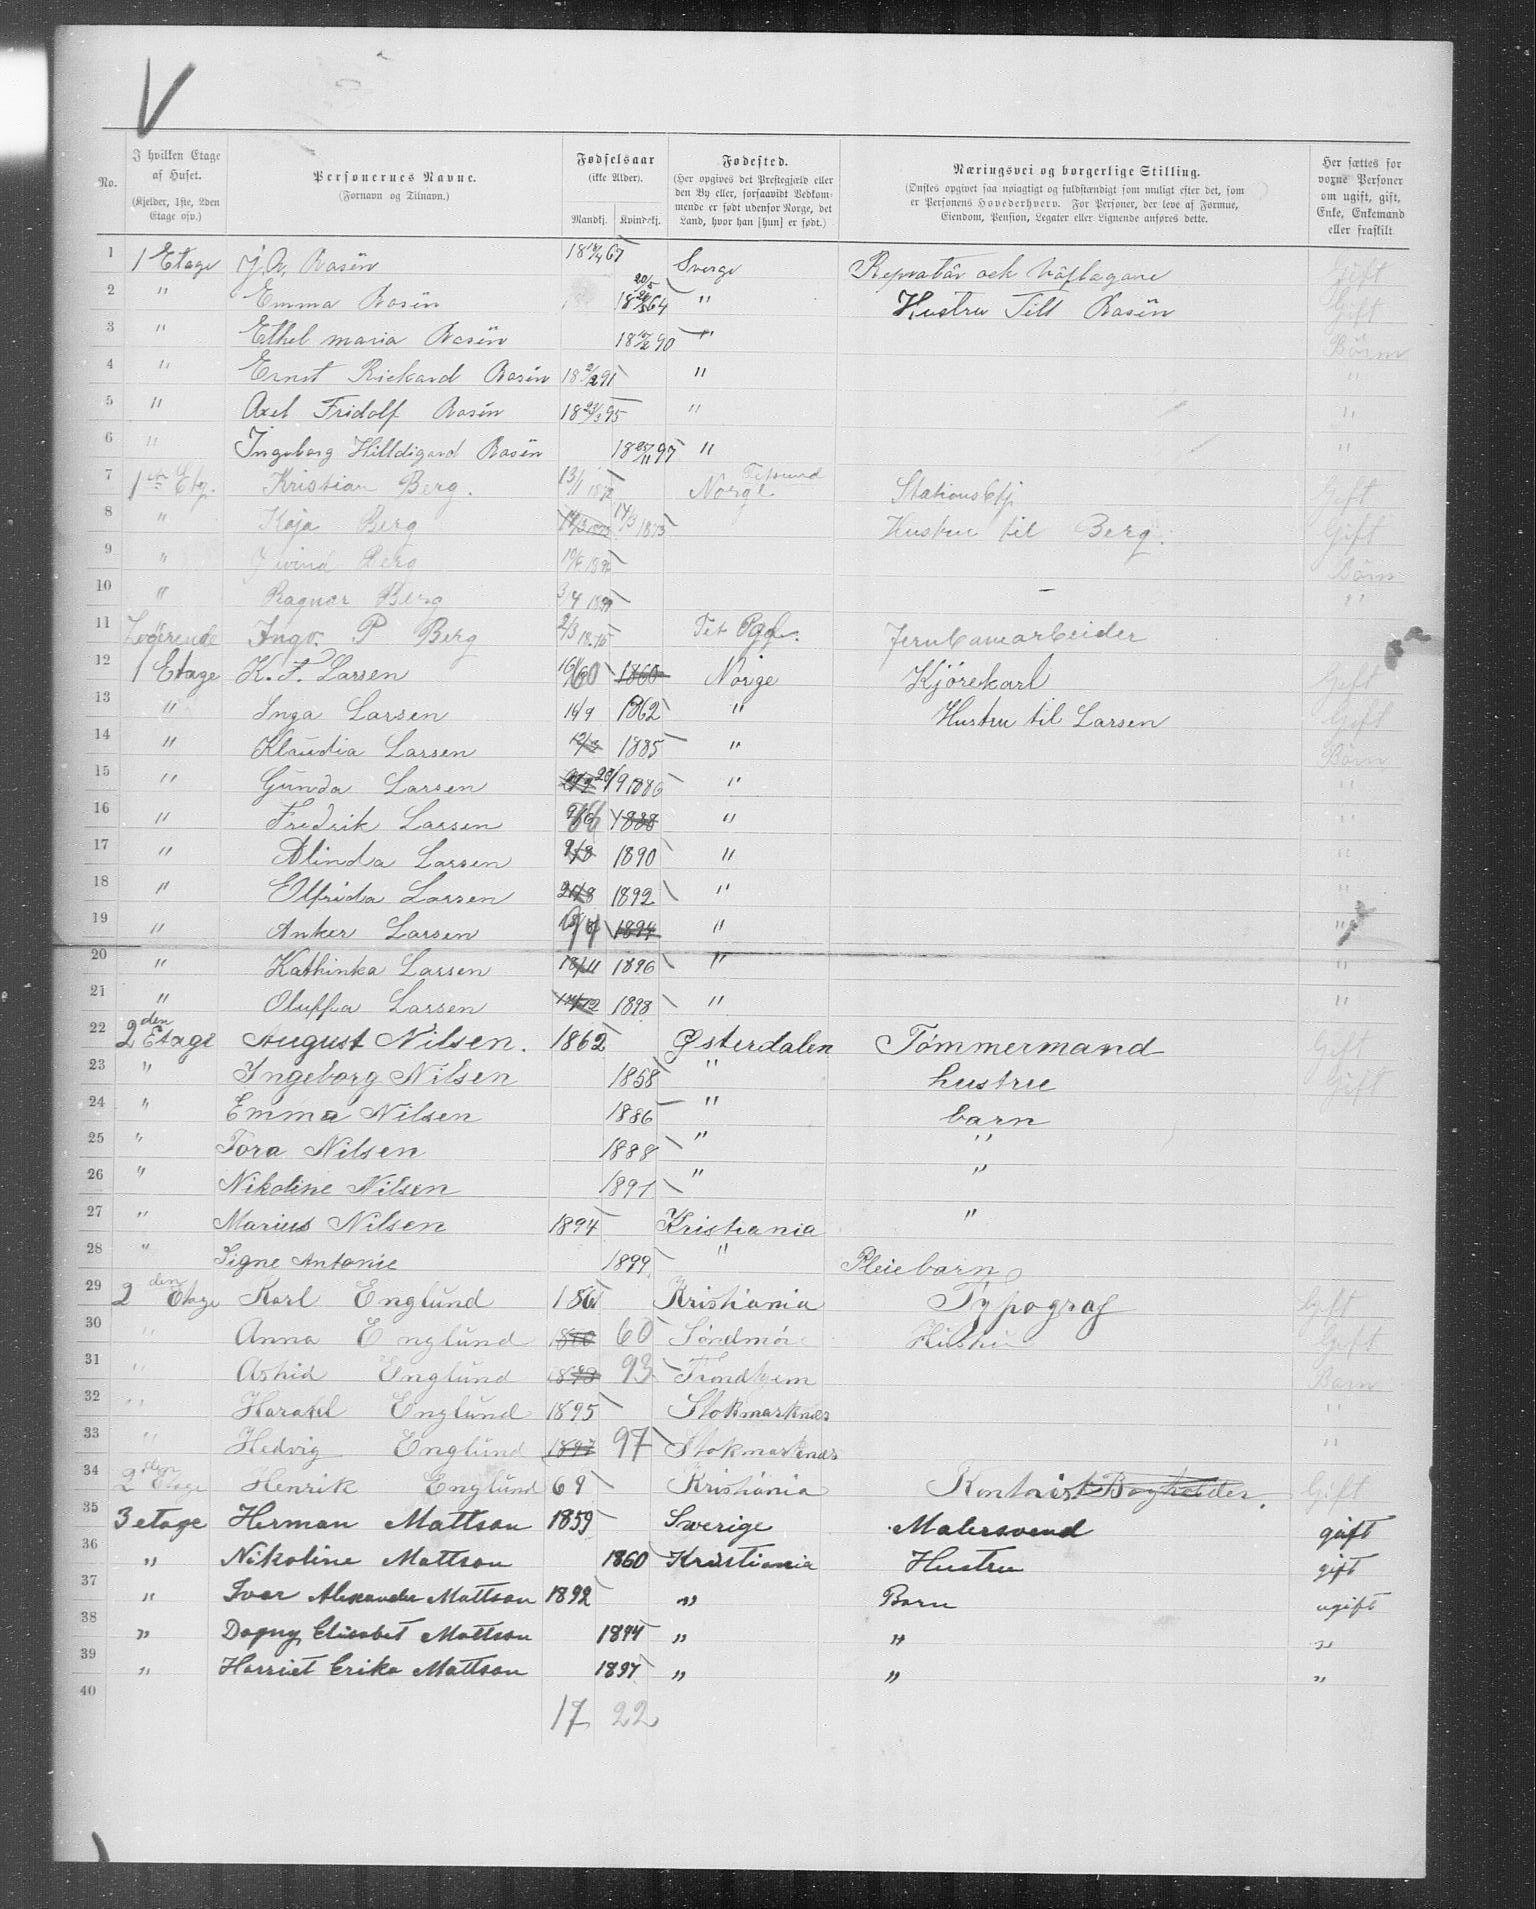 V
No.
I hvilken Etage af Huset.
(Kjelder, 1ste, 2den Etage osv.)
Personernes Navne.
(Fornavn og Tilnavn.)
Fødselsaar
(ikke Alder).
Mandkj. Kvindekj.
Fødested.
(Her opgives det Prestegjæld eller den By eller, forsaavidt Vedkommende er født udenfor Norge, det Land, hvor han [hun] er født.)
Næringsvei og borgerlige Stilling.
(Ønskes opgivet saa nøiagtigt og fuldstændigt som muligt efter det, som er Personens Hovederhverv. For Personer, der leve af Formue, Eiendom, Pension, Legater eller Lignende anføres dette.
Her sættes for voxne Personer om ugift, gift, Enke, Enkemand eller fraskilt.
1 1 Etage J. A. Rosën 67 Sverge Gift
2 " Emma Rosën 64 " Hustru Till Rosën Gift
3 " Ethel maria Rosën 90 " Börn
4 " Ernst Rickard Rosën 91 " "
5 " Axel Fridolf Rosën 95 " "
6 " Ingeborg Hilldigard Rosën 18 25/11 97 " "
7 1ste Etg. Kristian Berg. 13/1 1872 Norge Fetsund Stationsbtj Gift
8 " Kaja Berg 14/3 1873 Hustru til Berg. Gift
9 " Øivind Berg Børn
10 " Ragnar Berg 3/4 1899 "
11 Logerende Ingv. P Berg Fet Pgjl. Jernbanearbeider
12 1 Etage K. F. Larsen 60 1860 Norge Kjörekarl Gift
13 " Inga Larsen 14/9 1862 " Hustru til Larsen Gift
14 " Klaudia Larsen 12/3 1885 " Børn
15 " Gunda Larsen 20/9 1886 " "
16 " Fredrik Larsen 88 1888 " "
17 " Alinda Larsen 9/8 1890 " "
18 " Elfrida Larsen 21/8 1892 " "
19 " Anker Larsen 94 1894 " "
20 " Kathinka Larsen 18/11 1896 " "
21 " Oluffa Larsen 14/12 1898 " "
22 2den Etage August Nilsen. 1862 Østerdalen Tömmermand Gift
23 " Ingeborg Nilsen 1858 " hustru Gift
24 " Emma Nilsen 1886 " barn
25 " Tora Nilsen 1888 " "
26 " Nikoline Nilsen 1891 " "
27 " Marius Nilsen 1894 Kristiania "
28 " Signe Antonie 1899 " Pleiebarn
29 2den Etage Karl Englund 186 Kristiania Typograf Gift
30 " Anna Englund 1860 60 Söndmöre Hustru Gift
31 " Astrid Englund 1893 93 Trondhjem Barn
32 " Harald Englund 1895 Stokmarknes "
33 " Hedvig Englund 1897 97 Stokmarknes "
34 2den Etage Henrik Englund 69 Kristiania Kontorist Bogholder. Gift
35 3 etage Herman Mattson 1859 Swerige Malersvend gift
36 " Nikoline Mattson 1860 Kristiania Hustru gift
37 " Ivar Alexander Mattson 1892 " Barn ugift
38 " Dagny Elisabet Mattson 1894 " " "
39 " Harriet Erika Mattson 1897 " " "
40
17 22